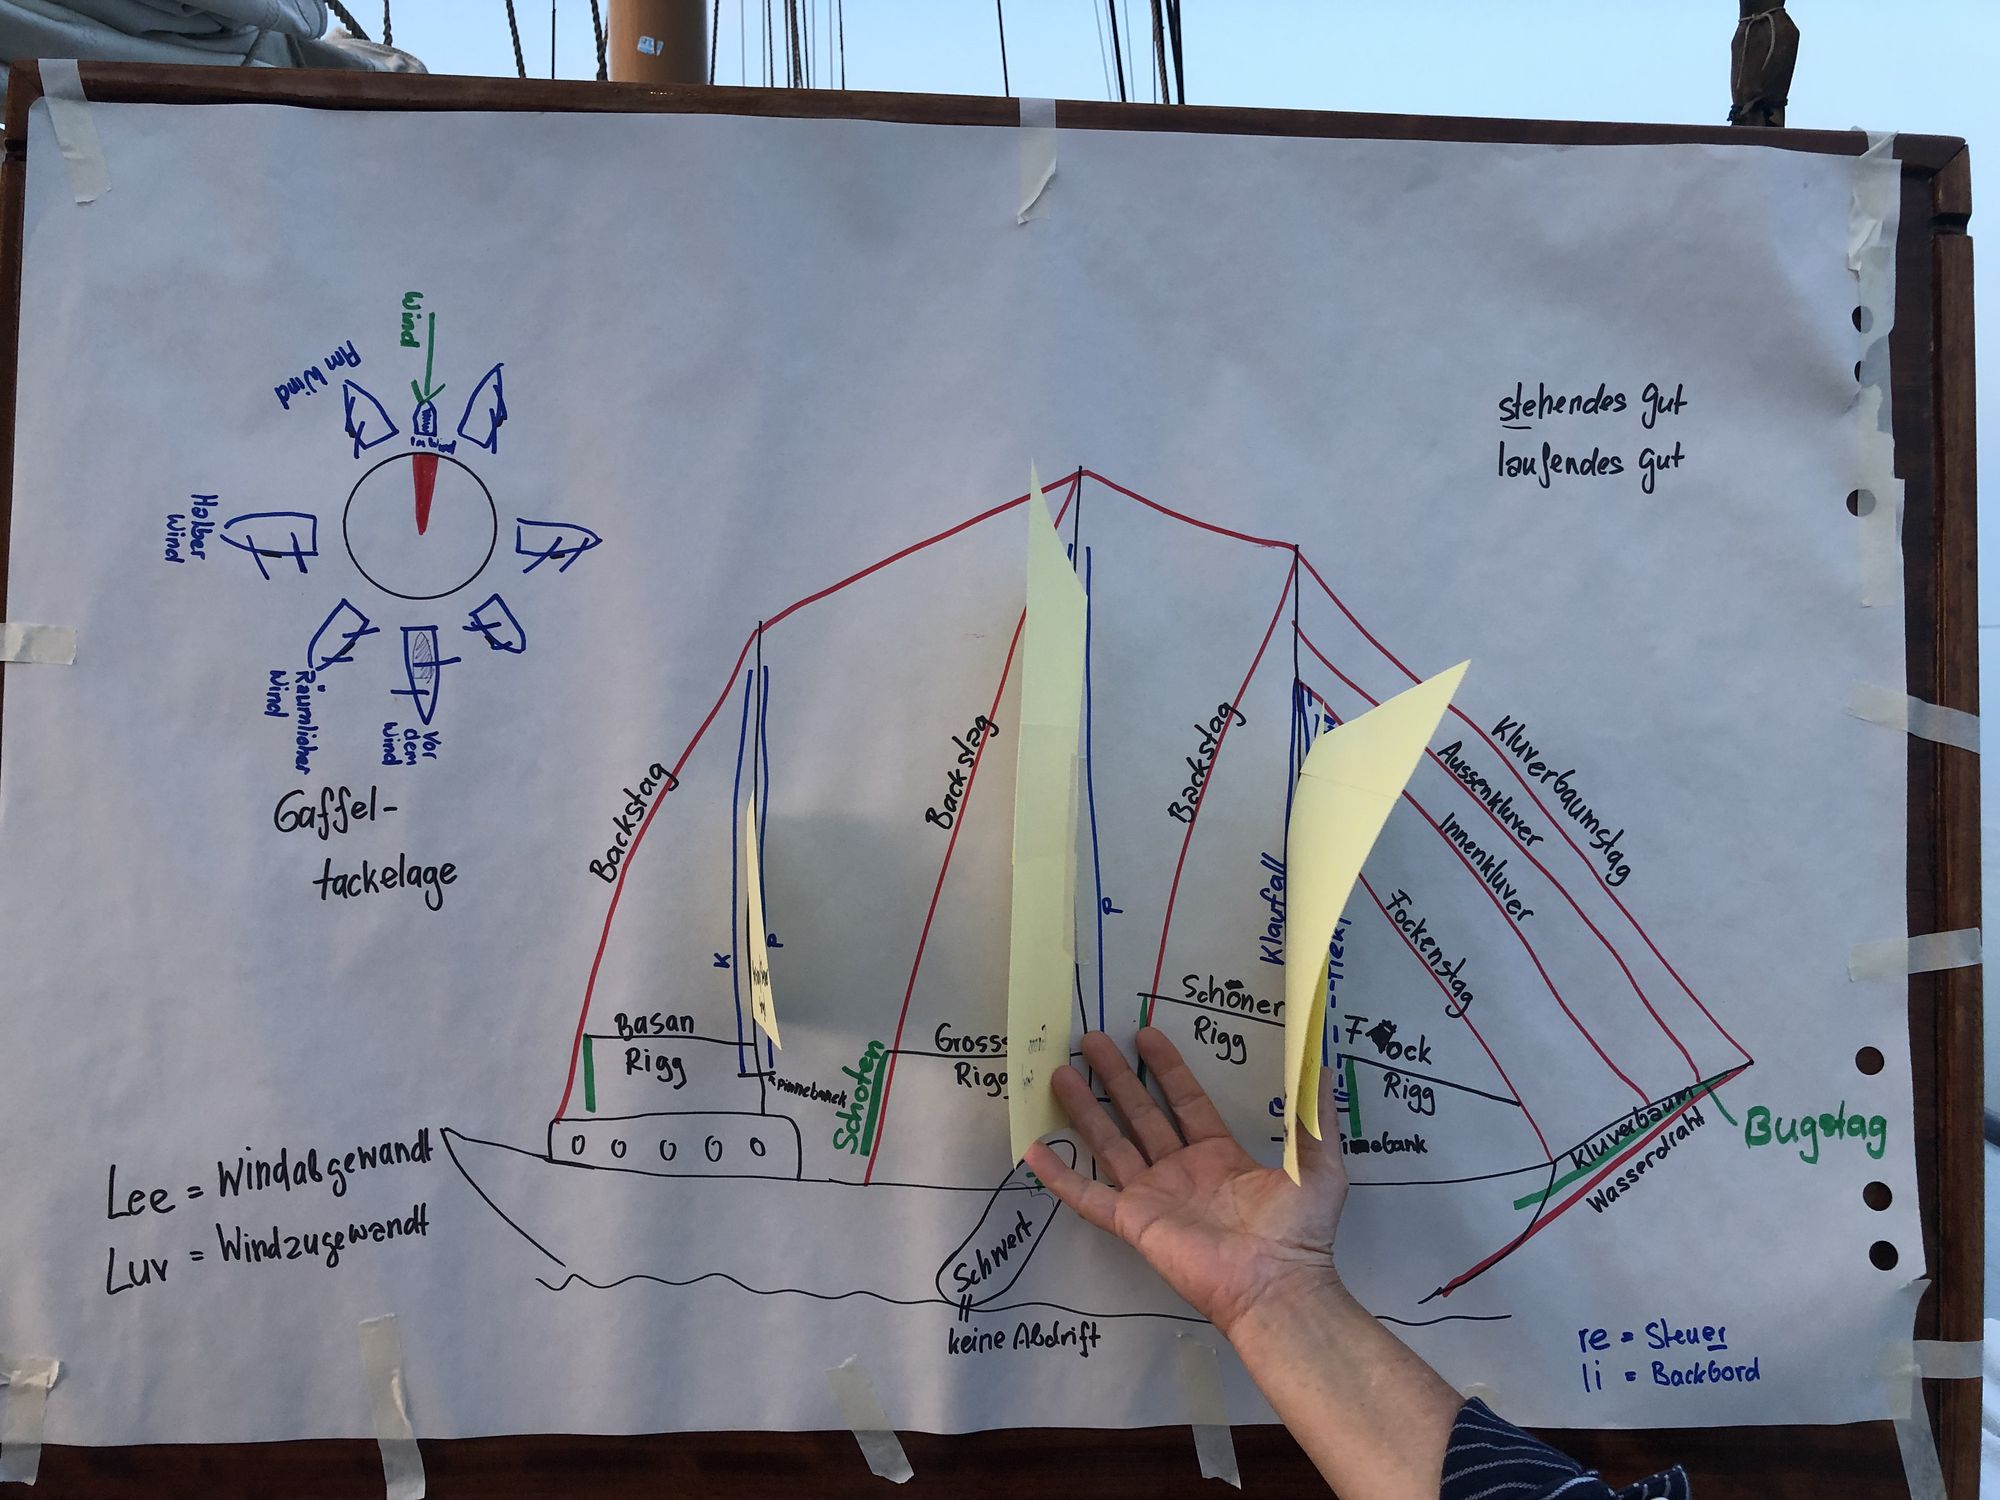 Wind
Am Wind
Im Wind
Halber
Wind
Räumlicher
Wind
Vor
dem
Wind
Gaffel-
tackelage
stehendes Gut
laufendes Gut
Backstag
Backstag
Backstag
Kluverbaumstag
Aussenkluver
Innenkluver
Fockenstag
Klaufall
K
P
P
Basan
Rigg
Pinnebanck
Schoten
Gross
Rigg
Schöner
Rigg
Fock
Rigg
re
li
Kluverbaum
Wasserdraht
Bugstag
Schwert
keine Abdrift
Lee = Windabgewandt
Luv = Windzugewandt
re = Steuer
li = Backbord